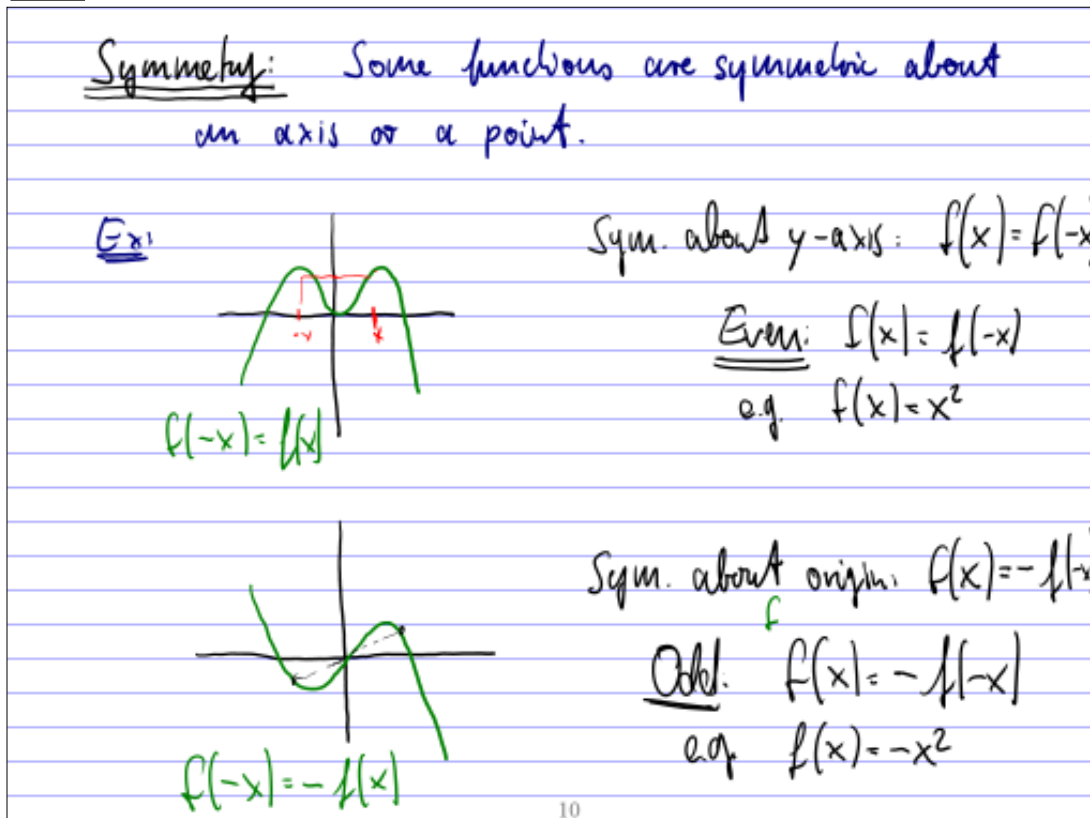 Symmetry: Some functions are symmetric about
an axis or a point.
Ex:
Sym. about y-axis: f(x)=f(-x)
-x x
Even: f(x)=f(-x)
e.g. f(x)=x²
f(-x)=f(x)
Sym. about origin: f(x)=-f(-x)
f
Odd: f(x)=-f(-x)
e.g. f(x)=-x²
f(-x)=-f(x)
10